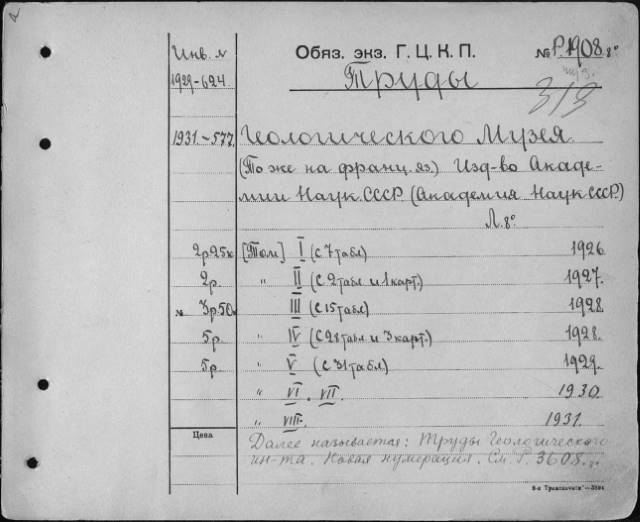 Инв. №
1929-624
1931.-577.
Обяз. экз. Г. Ц. К. П. № Р.1908. 8º
Труды
313
Геологического Музея
(То же на франц. яз.) Изд-во Акаде-
мии Наук СССР. (Академия Наук СССР)
Л. 8º
2р.25к. [Том] I (с 7 табл) 1926
2р. " II (с 2 табл и 1 карт.) 1927.
3р.50к. III (с 15 табл) 1928
5р. " IV (с 28 табл и 3 карт.) 1928.
5р. " V (с 31 табл) 1929.
" VI. VII. 1930.
" VIII. 1931.
Цена
Далее называется: Труды Геологического
ин-та. Новая нумерация. См. Р. 3608